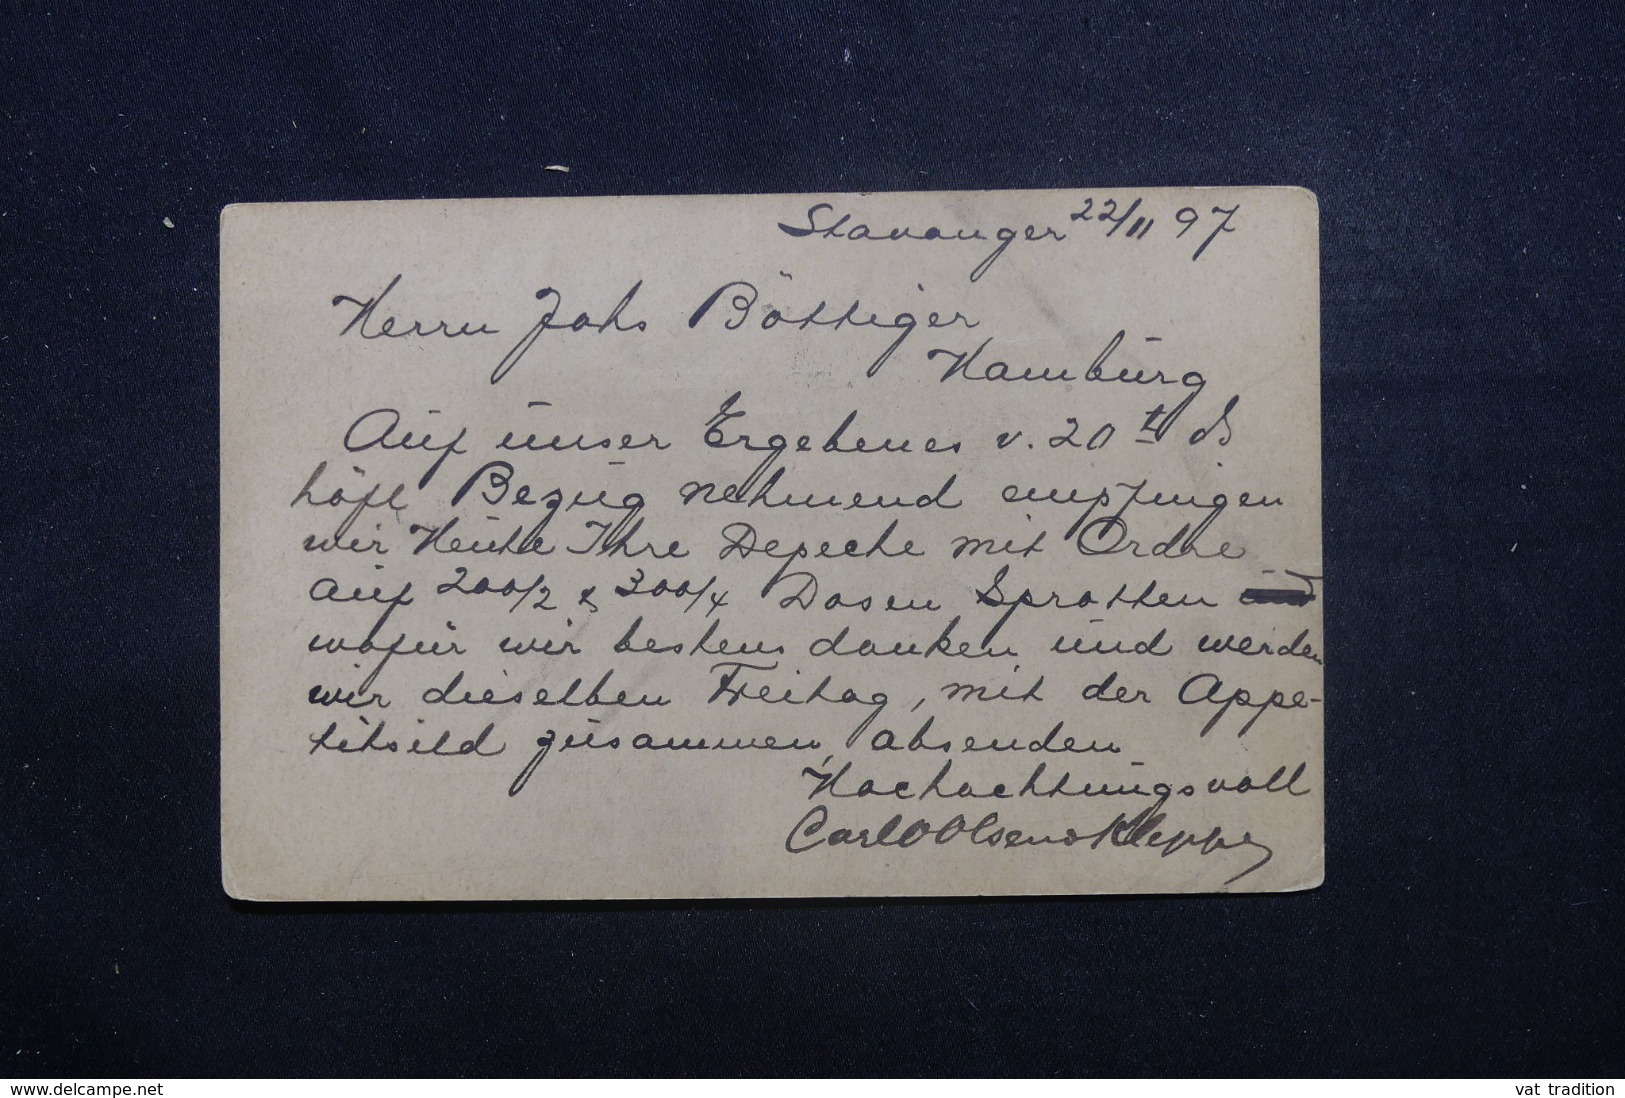 Stavanger 22/11 97
Herrn Johs Böttiger
Hamburg
Auf unser Ergebenes v. 20t ds
höfl Bezug nehmend empfingen
wir Heute Ihre Depeche mit Ordre
auf 200/2 & 300/4 Dosen Sprotten
wofür wir bestens danken und werden
wir dieselben Freitag, mit der Appe-
titsild zusammen, absenden
Hochachtungsvoll
Carl O Olsen & Kleppe
www.delcampe.net
vat tradition